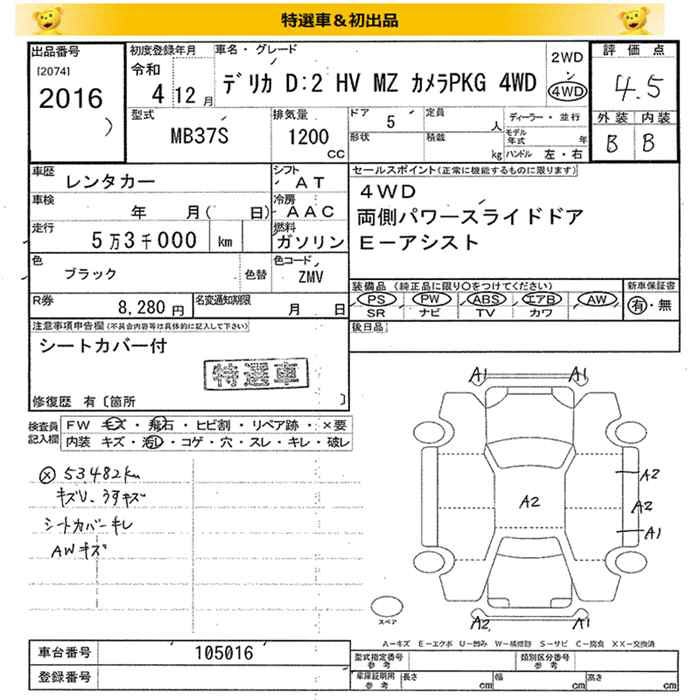 特選車＆初出品
出品番号 初度登録年月 車名・グレード 2WD 評価点
[2074] 令和 デリカ D:2 HV MZ カメラPKG 4WD 4WD 4.5
2016 4 12月
型式 排気量 ドア 5 定員 人 ディーラー・並行 外装 内装
MB37S 1200 CC 形状 積載 kg モデル年式 年 B B
ハンドル 左・右
車歴 レンタカー シフト AT セールスポイント(正常に機能するものに限ります)
車検 年 月( 日) 冷房 AAC 4WD
走行 5万3千000 km 燃料 ガソリン 両側パワースライドドア
E－アシスト
色 ブラック 色替 色コード ZMV
装備品 (純正品に限り○をつけてください) 新車保証書
R券 8,280円 名変通知期限 月 日 PS PW ABS エアB AW 有・無
SR ナビ TV カワ
注意事項申告欄(不具合内容等は具体的に記入して下さい) 後日品
シートカバー付
特選車
修復歴 有〔箇所 〕
検査員記入欄 FW キズ・飛石・ヒビ割・リペア跡・×要
内装 キズ・汚れ・コゲ・穴・スレ・キレ・破レ
ⓧ 53,482km
キズU、うすキズ
シートカバーキレ
AWキズ
A1 A1
A2
A2 A2
A1
A2 A1
スペア
A－キズ E－エクボ U－凹み W－補修跡 S－サビ C－腐食 XX－交換済
車台番号 105016 型式指定番号 参考 類別区分番号 参考
登録番号 車庫証明用 参考 長さ cm 幅 cm 高さ cm